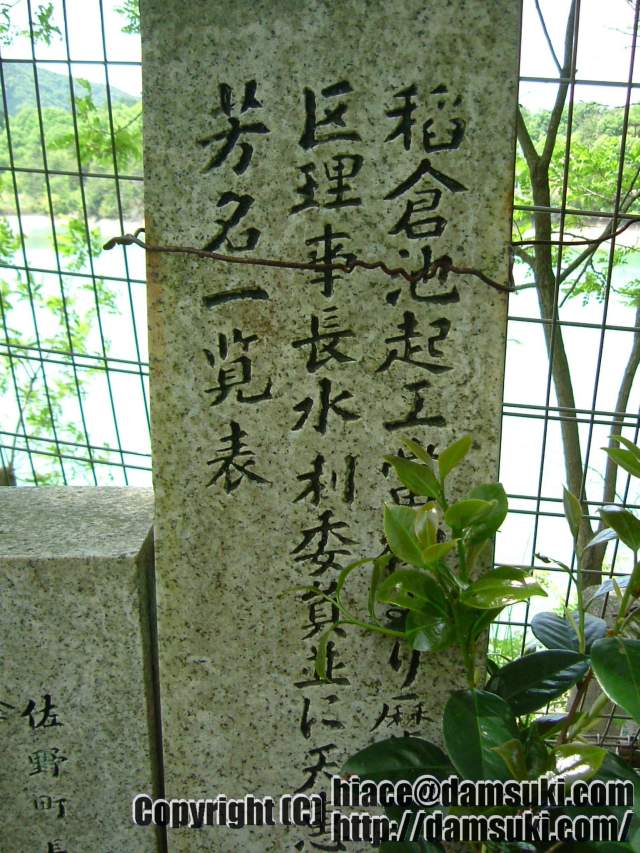 稲倉池起工當時より歴
区理事長水利委員並に天
芳名一覧表
佐野町長
Copyright (C) hiace@damsuki.com
http://damsuki.com/